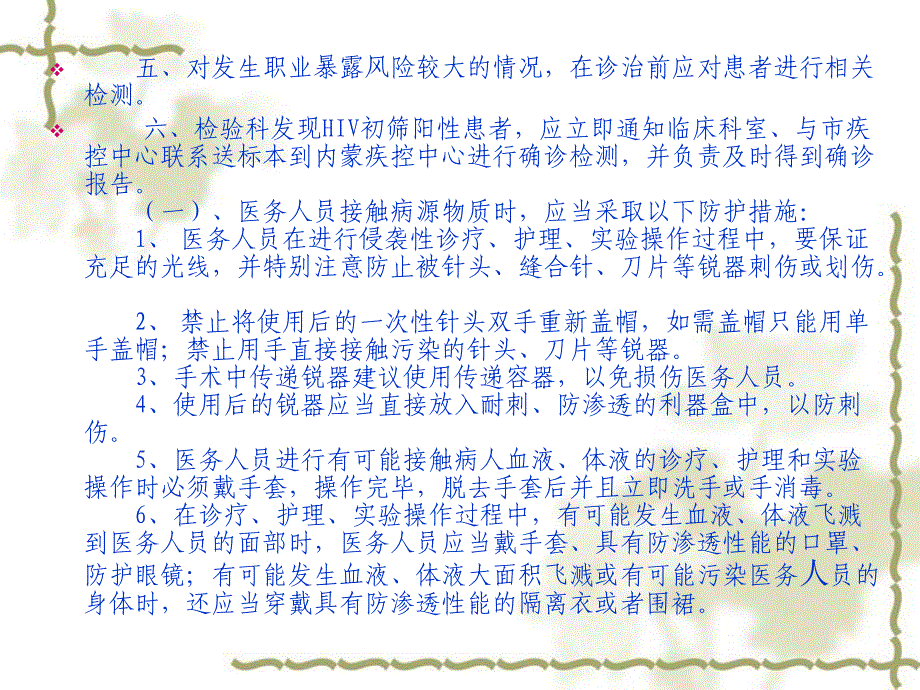 五、对发生职业暴露风险较大的情况，在诊治前应对患者进行相关
检测。
六、检验科发现HIV初筛阳性患者，应立即通知临床科室、与市疾
控中心联系送标本到内蒙疾控中心进行确诊检测，并负责及时得到确诊
报告。
（一）、医务人员接触病源物质时，应当采取以下防护措施：
1、 医务人员在进行侵袭性诊疗、护理、实验操作过程中，要保证
充足的光线，并特别注意防止被针头、缝合针、刀片等锐器刺伤或划伤。
2、 禁止将使用后的一次性针头双手重新盖帽，如需盖帽只能用单
手盖帽；禁止用手直接接触污染的针头、刀片等锐器。
3、手术中传递锐器建议使用传递容器，以免损伤医务人员。
4、使用后的锐器应当直接放入耐刺、防渗透的利器盒中，以防刺
伤。
5、医务人员进行有可能接触病人血液、体液的诊疗、护理和实验
操作时必须戴手套，操作完毕，脱去手套后并且立即洗手或手消毒。
6、在诊疗、护理、实验操作过程中，有可能发生血液、体液飞溅
到医务人员的面部时，医务人员应当戴手套、具有防渗透性能的口罩、
防护眼镜；有可能发生血液、体液大面积飞溅或有可能污染医务人员的
身体时，还应当穿戴具有防渗透性能的隔离衣或者围裙。